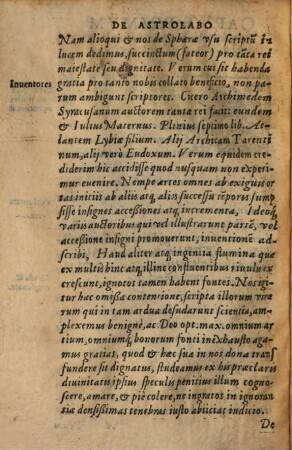 DE ASTROLABO
Nam alioqui & nos de Sphæræ vsu scriptũ in
lucem dedimus, succinctum (fateor) pro tãta rei
maiestate seu dignitate. Verum cui sit habenda
Inuentores
gratia pro tanto nobis collato beneficio, non pa-
rum ambigunt scriptores. Cicero Archimedem
Syracusanum auctorem tanta rei facit: eundem
& Iulius Maternus. Plinius septimo lib. At-
lantem Lybiæ filium. Alij Architam Tarenti
num, alij verò Eudoxum. Verum equidem cre-
diderim hic accidisse quod nusquam non experi-
mur euenire. Nempe artes omnes ab exiguis or
tas initijs ab alijs atq; alijs successu tẽporis sump
sisse insignes accessiones atq; incrementa, Ideoq;
varijs auctoribus qui vel illustrarunt partẽ, vel
accessione insigni promouerunt, inuentionẽ ad-
scribi, Haud aliter atq; ingentia flumina quæ
ex multis hinc atq; illinc confluentibus riuulis ex
crescunt, ignotos tamen habent fontes. Nos igi
tur hac omissa contensione, scripta illorum viro
rum qui in tam ardua desudarunt scientia, am-
plexemus benignè, ac Deo opt. max. omnium ar
tium, omniumq; bonorum fonti inexhausto aga
mus gratias, quod & hæc sua in nos dona trans
fundere sit dignatus, studeamus ex his præclaris
diuinitatis ipsius speculis penitius illum cogno-
scere, amare, & piè colere, ne ingratos in ignoran
tiæ densissimas tenebras iusto abijciat iudicio.
De